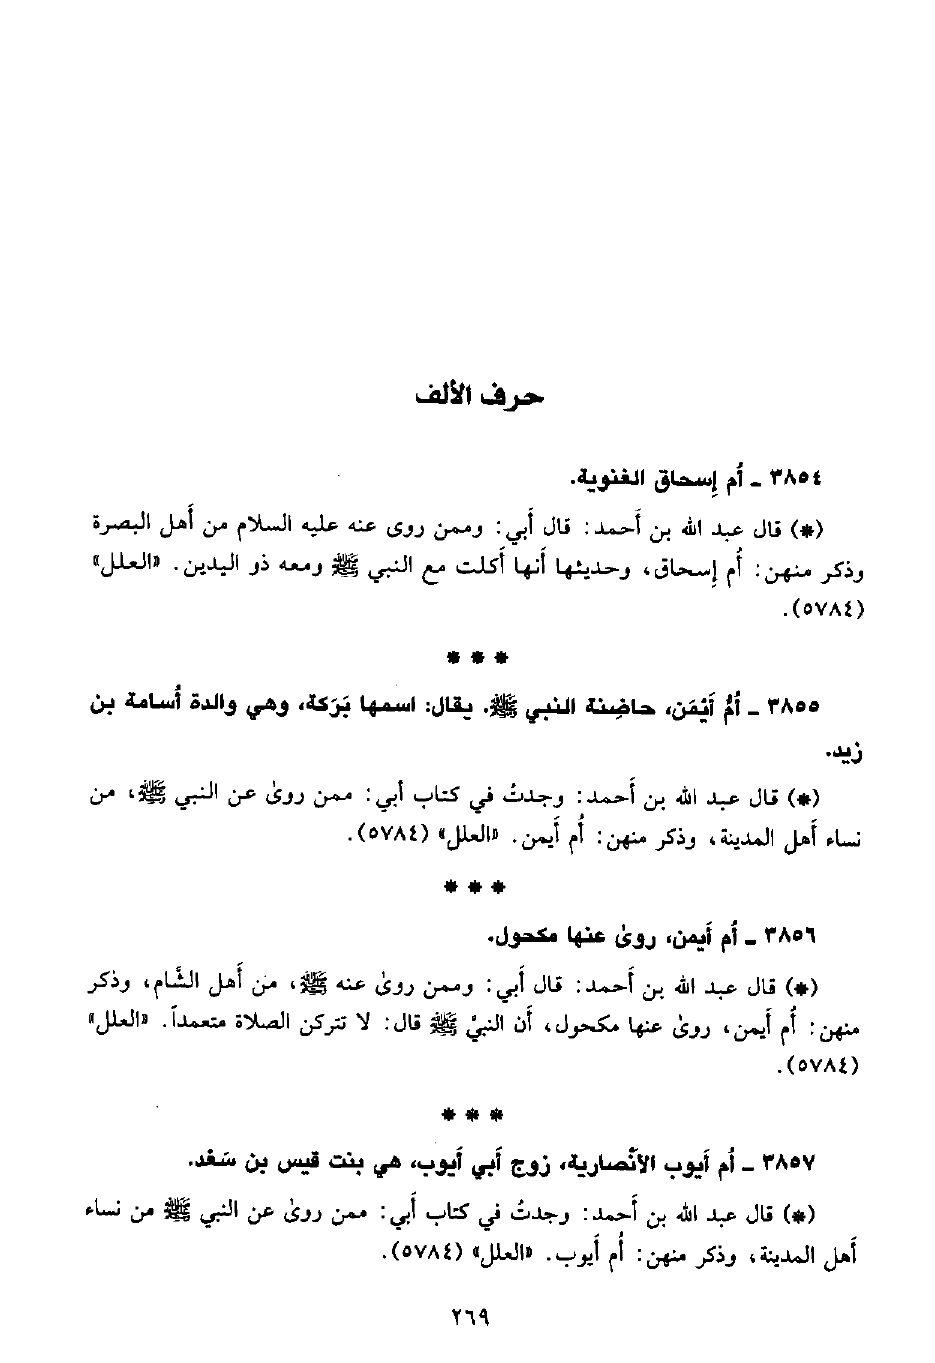 حرف الألف
٣٨٥٤ ـ أُم إِسحاق الغنوية.
(*) قال عبد الله بن أَحمد: قال أَبي: وممن روى عنه عليه السلام من أَهل البصرة
وذكر منهن: أُم إِسحاق، وحديثها أَنها أَكلت مع النبي ﷺ ومعه ذو اليدين. «العلل»
(٥٧٨٤).
* * *
٣٨٥٥ ـ أُمُّ أَيْمَن، حاضِنة النبي ﷺ. يقال: اسمها بَرَكة، وهي والدة أُسامة بن
زيد.
(*) قال عبد الله بن أَحمد: وجدتُ في كتاب أَبي: ممن روىٰ عن النبي ﷺ، من
نساء أَهل المدينة، وذكر منهن: أُم أَيمن. «العلل» (٥٧٨٤).
* * *
٣٨٥٦ ـ أُم أَيمن، روىٰ عنها مكحول.
(*) قال عبد الله بن أَحمد: قال أَبي: وممن روىٰ عنه ﷺ، من أَهل الشَّام، وذكر
منهن: أُم أَيمن، روىٰ عنها مكحول، أَن النبيَّ ﷺ قال: لا تتركن الصلاة متعمداً. «العلل»
(٥٧٨٤).
* * *
٣٨٥٧ ـ أُم أَيوب الأَنْصارية، زوج أَبي أَيوب، هي بنت قيس بن سَعْد.
(*) قال عبد الله بن أَحمد: وجدتُ في كتاب أَبي: ممن روىٰ عن النبي ﷺ من نساء
أَهل المدينة، وذكر منهن: أُم أَيوب. «العلل» (٥٧٨٤).
٢٦٩